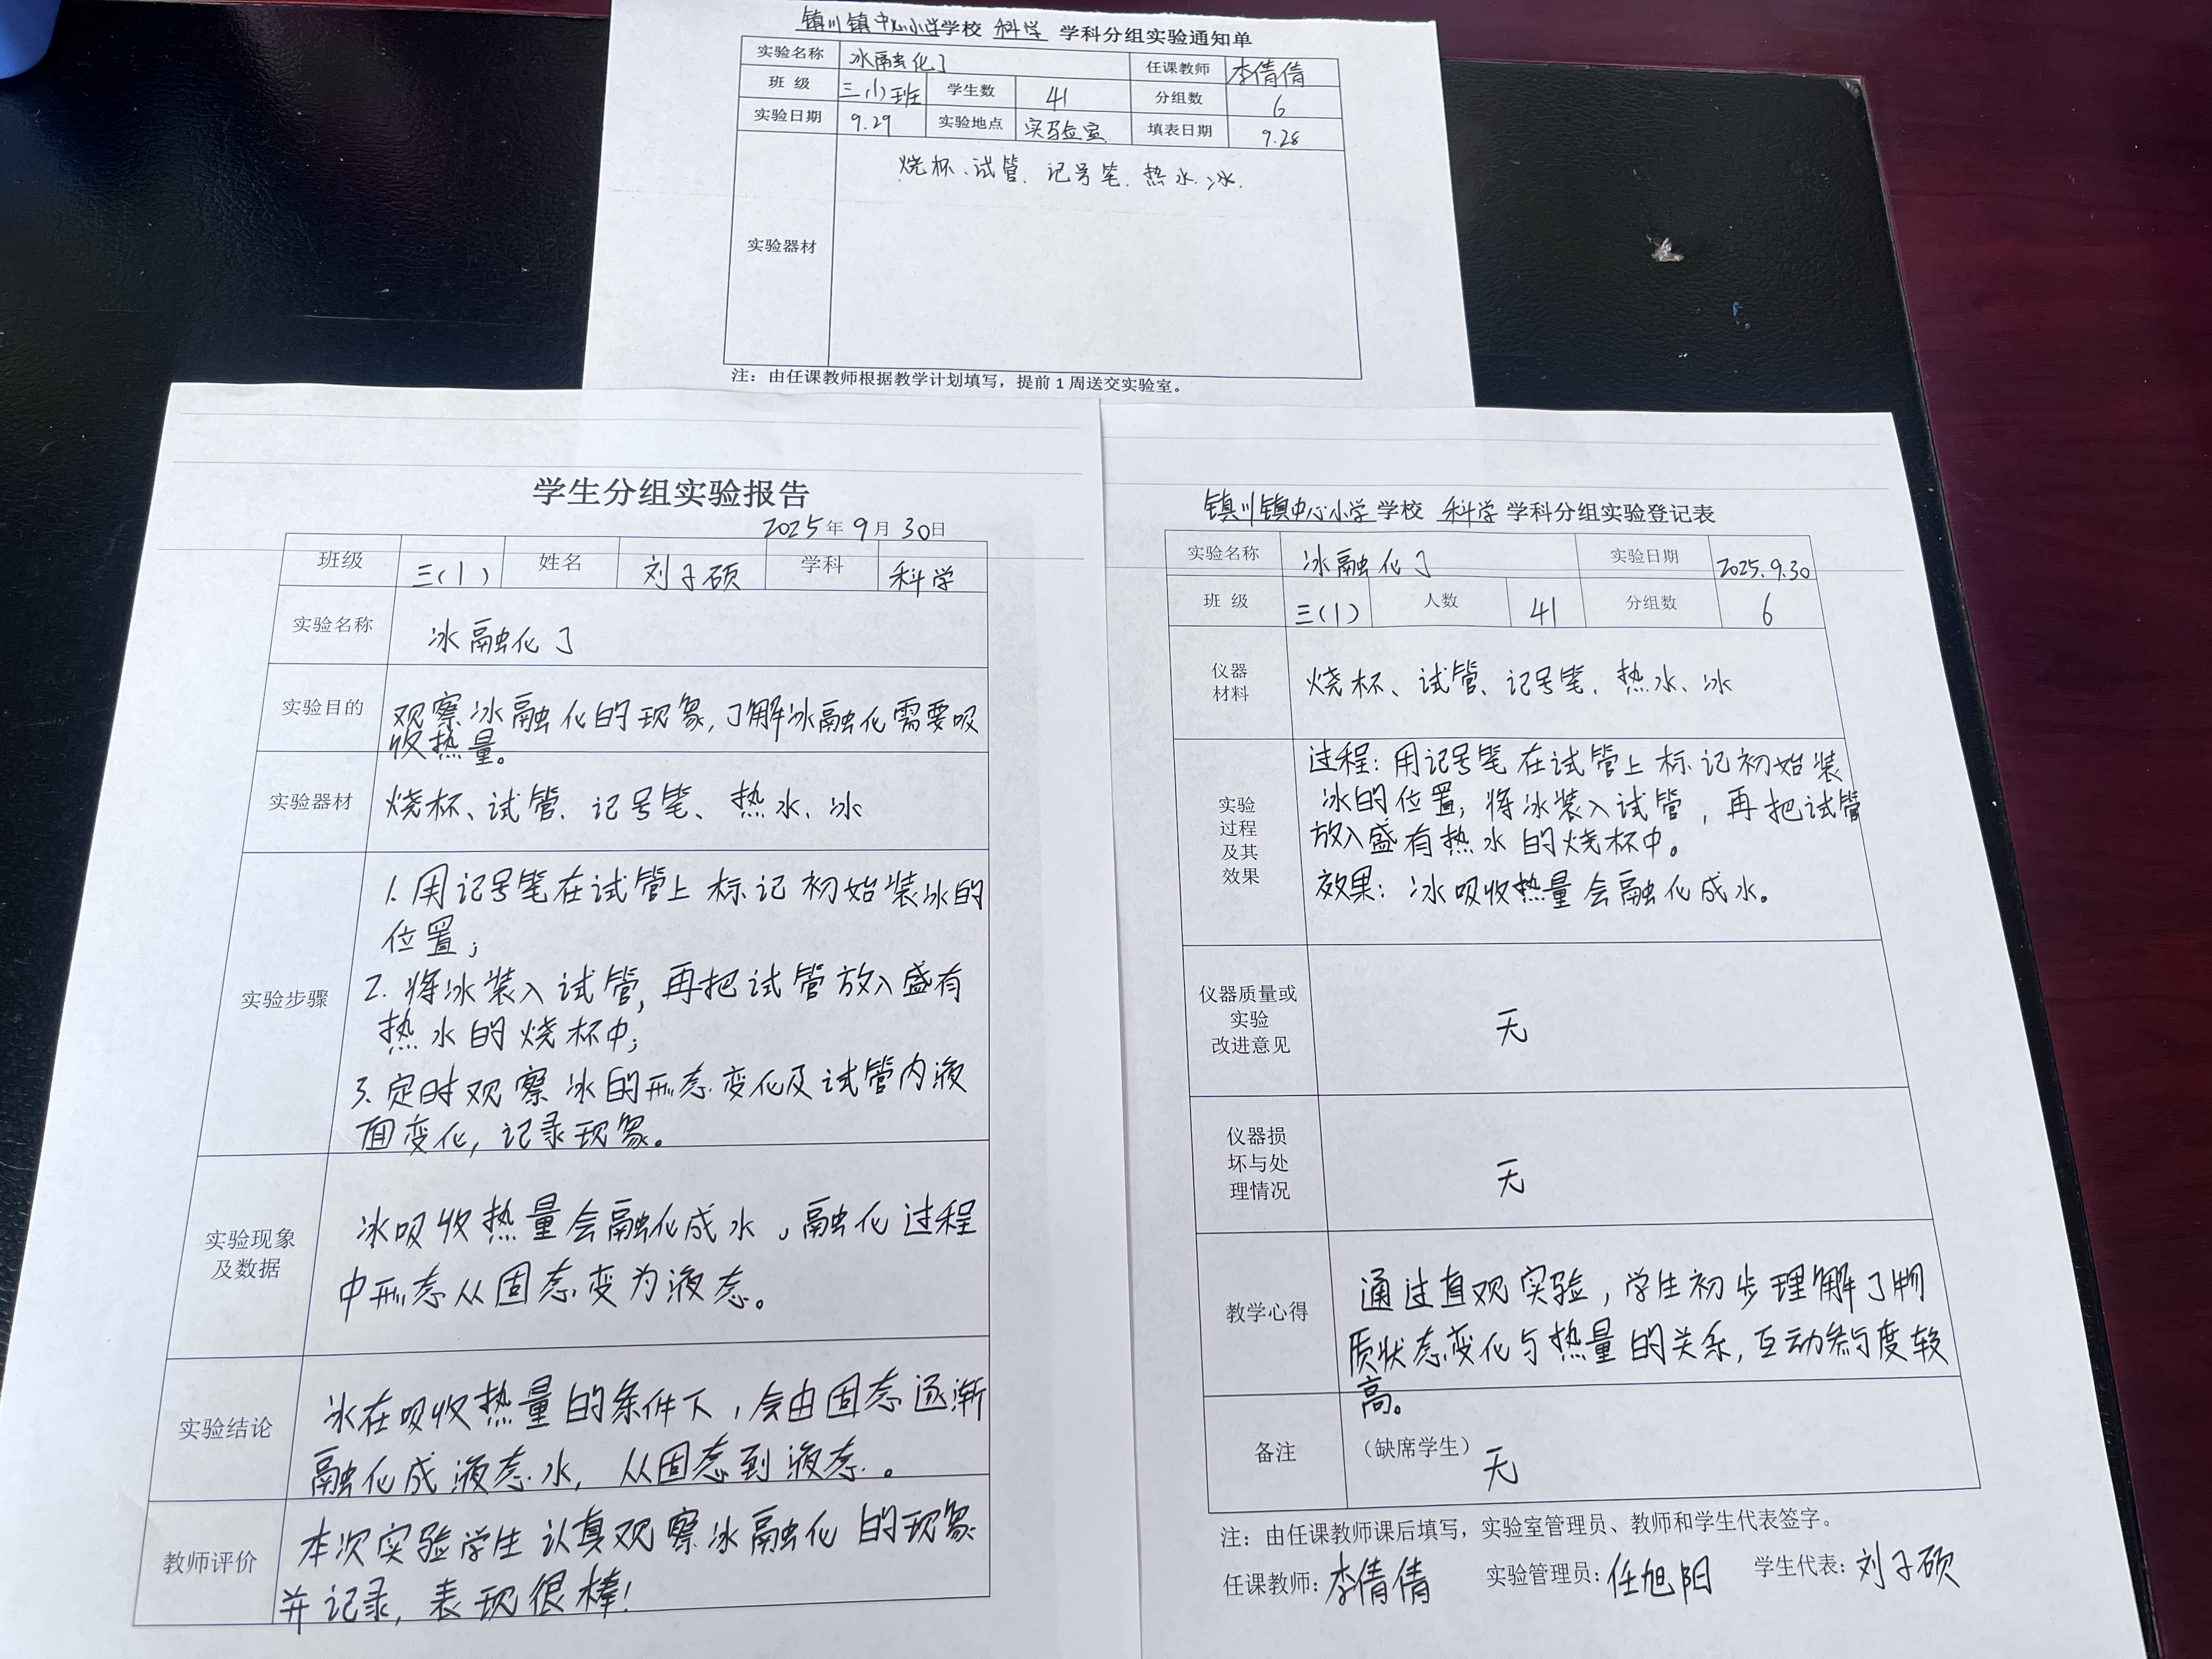 镇川镇中心小学学校 科学 学科分组实验通知单
实验名称 冰融化了 任课教师 李倩倩
班 级 三(1)班 学生数 41 分组数 6
实验日期 9.29 实验地点 实验室 填表日期 9.28
实验器材 烧杯、试管、记号笔、热水、冰.
注：由任课教师根据教学计划填写，提前1周送交实验室。
学生分组实验报告
2025年9月30日
班级 三(1) 姓名 刘子硕 学科 科学
实验名称 冰融化了
实验目的 观察冰融化的现象,了解冰融化需要吸
收热量。
实验器材 烧杯、试管、记号笔、热水、冰
实验步骤
1.用记号笔在试管上标记初始装冰的
位置;
2.将冰装入试管,再把试管放入盛有
热水的烧杯中;
3.定时观察冰的形态变化及试管内液
面变化,记录现象。
实验现象
及数据
冰吸收热量会融化成水，融化过程
中形态从固态变为液态。
实验结论
冰在吸收热量的条件下,会由固态逐渐
融化成液态水,从固态到液态。
教师评价
本次实验学生认真观察冰融化的现象
并记录,表现很棒!
镇川镇中心小学学校 科学 学科分组实验登记表
实验名称 冰融化了 实验日期 2025.9.30
班 级 三(1) 人数 41 分组数 6
仪器
材料
烧杯、试管、记号笔、热水、冰
实验
过程
及其
效果
过程:用记号笔在试管上标记初始装
冰的位置;将冰装入试管,再把试管
放入盛有热水的烧杯中。
效果:冰吸收热量会融化成水。
仪器质量或
实验
改进意见
无
仪器损
坏与处
理情况
无
教学心得
通过直观实验,学生初步理解了物
质状态变化与热量的关系,互动参与度较
高。
备注 （缺席学生） 无
注：由任课教师课后填写，实验室管理员、教师和学生代表签字。
任课教师:李倩倩 实验管理员:任旭阳 学生代表:刘子硕